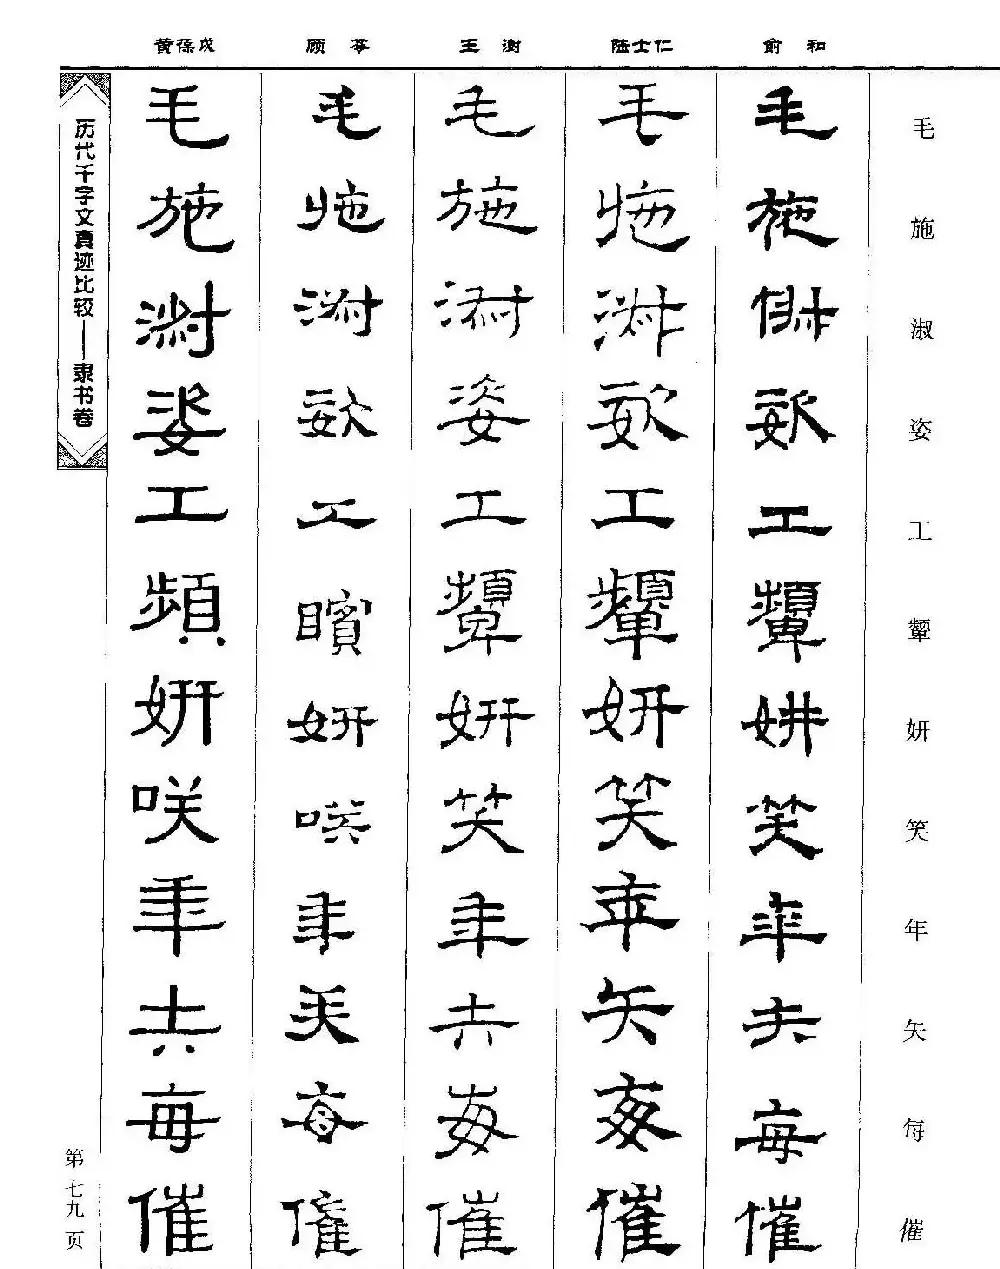 黄葆戉 顾苓 王澍 陆士仁 俞和
毛施淑姿工颦妍笑年矢每催
毛施俶姿工顰妍笑年矢每催
毛施淑姿工顰妍笑年矢每催
毛施淑姿工顰妍笑年矢每催
毛施淑姿工矉妍咲年矢每催
毛施淑姿工頻妍咲年矢每催
历代千字文真迹比较——隶书卷
第七九页